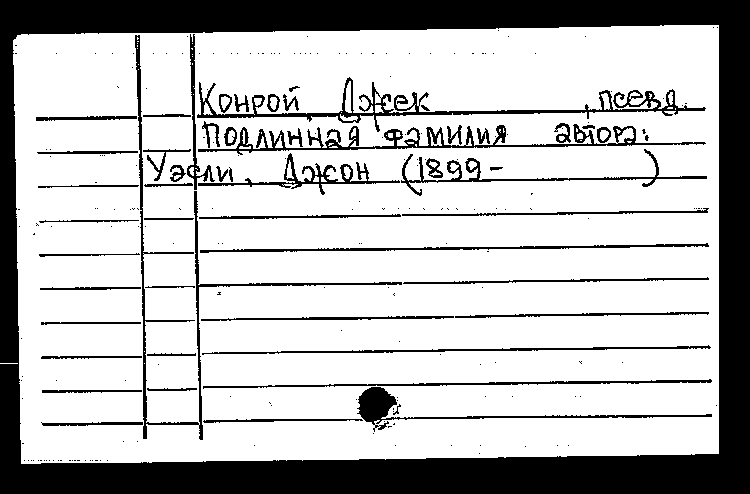 Конрой, Джек , псевд.
Подлинная фамилия автора:
Уэсли, Джон (1899-      )